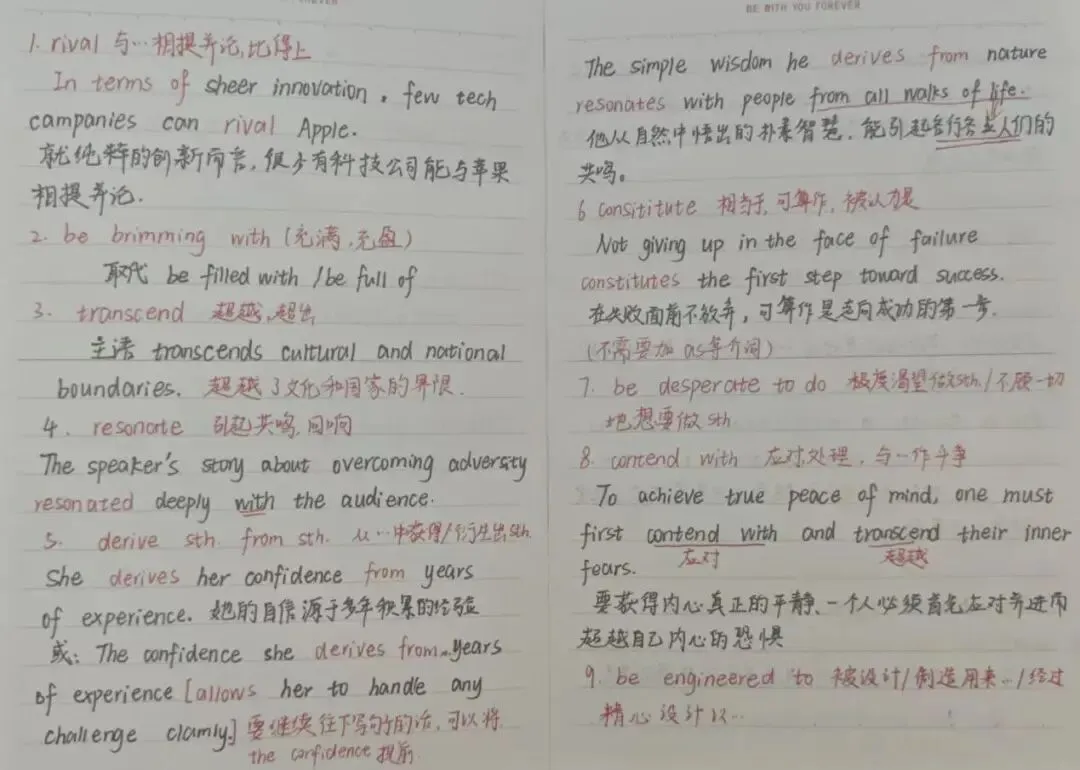 FOREVER
1. rival 与…相提并论,比得上
In terms of sheer innovation, few tech
campanies can rival Apple.
就纯粹的创新而言,很少有科技公司能与苹果
相提并论.
2. be brimming with (充满,充盈)
取代 be filled with / be full of
3. transcend 超越,超出
主语 transcends cultural and national
boundaries. 超越了文化和国家的界限.
4. resonate 引起共鸣,回响
The speaker's story about overcoming adversity
resonated deeply with the audience.
5. derive sth. from sth. 从…中获得/衍生出sth.
She derives her confidence from years
of experience. 她的自信源于多年积累的经验
或: The confidence she derives from years
of experience [allows her to handle any
challenge clamly.] 要继续往下写句子的话,可以将
the confidence 提前.
BE WITH YOU FOREVER
The simple wisdom he derives from nature
resonates with people from all walks of life.
他从自然中悟出的朴素智慧,能引起各行各业人们的
共鸣。
6 consititute 相当于,可算作,被认为是
Not giving up in the face of failure
constitutes the first step toward success.
在失败面前不放弃,可算作是走向成功的第一步.
(不需要加 as等介词)
7. be desperate to do 极度渴望做sth./不顾一切
地想要做sth
8. contend with 应对,处理,与…作斗争
To achieve true peace of mind, one must
first contend with and transcend their inner
应对 超越
fears.
要获得内心真正的平静、一个人必须首先应对并进而
超越自己内心的恐惧
9. be engineered to 被设计/制造用来…/经过
精心设计以…